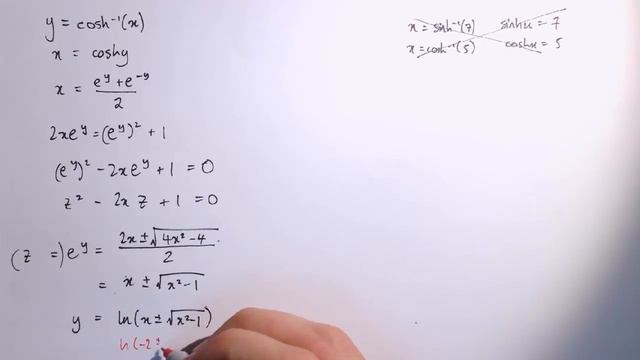 y = cosh⁻¹(x)
x = coshy
x = (e^y + e^-y)/2
2xe^y = (e^y)² + 1
(e^y)² - 2xe^y + 1 = 0
z² - 2x z + 1 = 0
(z =) e^y = (2x ± √(4x² - 4))/2
= x ± √(x² - 1)
y = ln(x ± √(x² - 1))
ln(-2 ±
x = sinh⁻¹(7) sinhx = 7
x = cosh⁻¹(5) coshx = 5